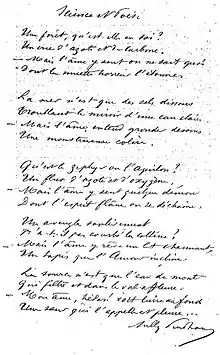 Science et Poésie
Un forêt, qu'est-elle en soi?
Un crie d'azote et de carbone.
— Mais l'âme y sent on ne sait quoi
Dont la muette horreur l'étonne.
La mer n'est que des sels dissous
Troublant le miroir d'une eau claire
— Mais l'âme entend gronder dessous
Une monstrueuse colère.
Qu'est-ce le zéphyr ou l'aquilon?
Un flux d'azote et d'oxygène.
— Mais l'âme y sent quelque démon
Dont l'esprit flâne ou se déchaîne.
Un aveugle soulèvement
N'a-t-il pas courbé la colline?
— Mais l'âme y rêve un lit charmant,
Un tapis que l'Amour incline.
La source n'est que l'eau du mont
Qui filtre et dans le val afflue.
— Mon âme, hélas! voit luire au fond
Un seul qui l'appelle et pleure...
Sully Prudhomme